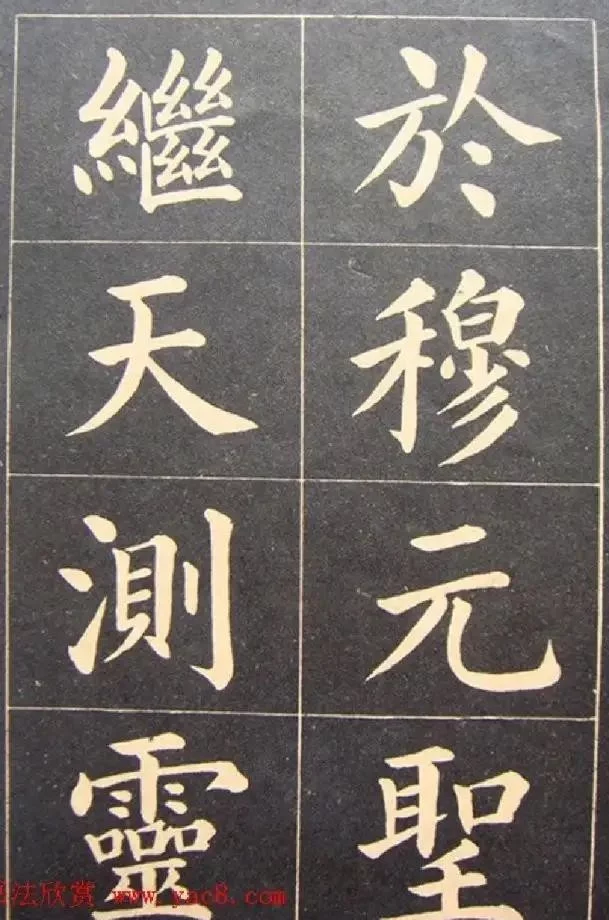 於穆元聖
繼天測靈
法欣赏 www.yac8.com